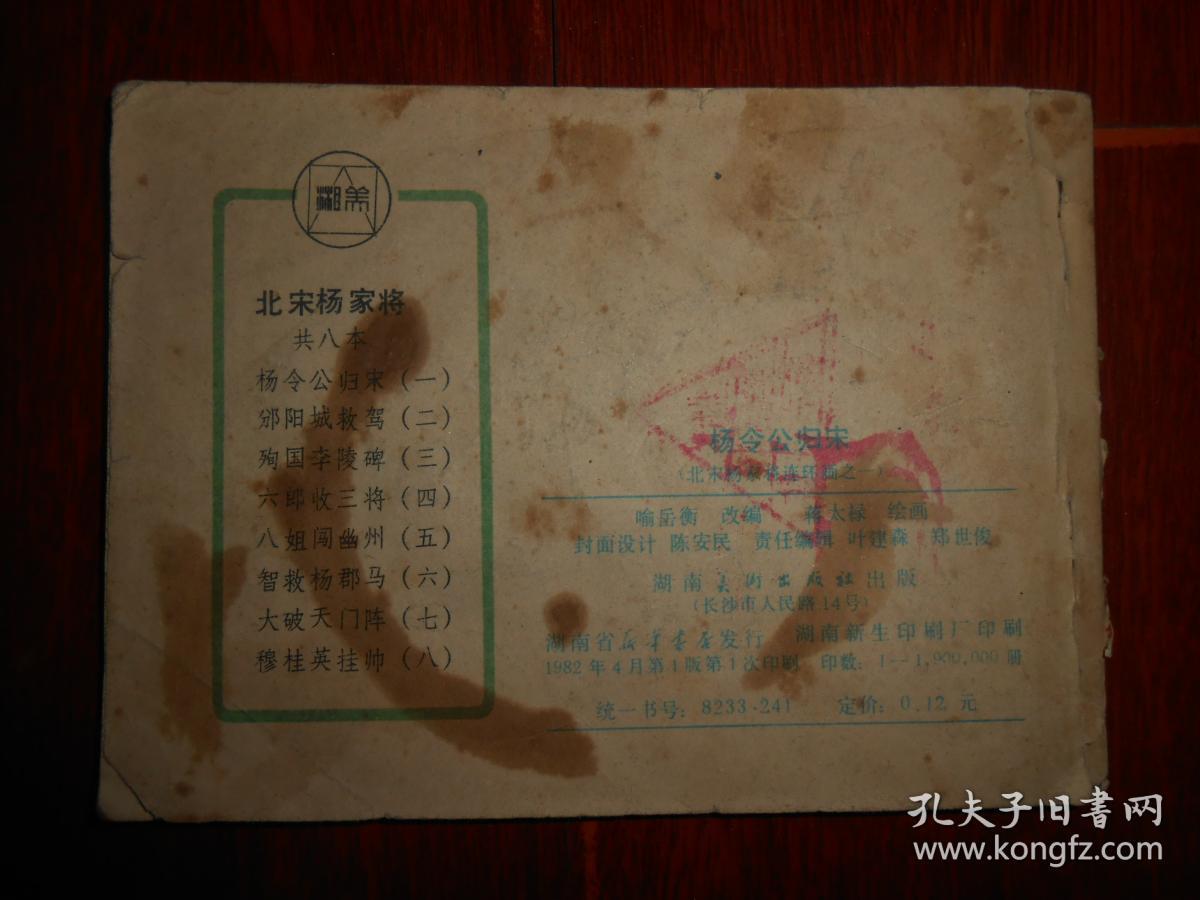 湘美
北宋杨家将
共八本
杨令公归宋（一）
邠阳城救驾（二）
殉国李陵碑（三）
六郎收三将（四）
八姐闯幽州（五）
智救杨郡马（六）
大破天门阵（七）
穆桂英挂帅（八）
杨令公归宋
（北宋杨家将连环画之一）
喻岳衡 改编 蒋太禄 绘画
封面设计 陈安民 责任编辑 叶建森 郑世俊
湖南美术出版社出版
（长沙市人民路14号）
湖南省新华书店发行 湖南新生印刷厂印刷
1982年4月第1版第1次印刷 印数：1—1,900,000册
统一书号：8233·241 定价：0.12元
孔夫子旧书网
www.kongfz.com